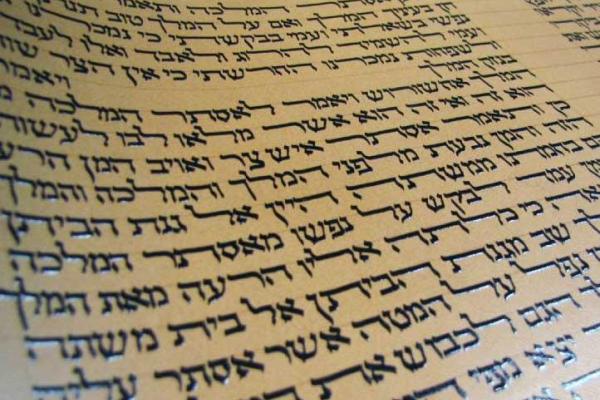 המלך ואם על המלך טוב
נפשי בשאלתי ועמי בבקשתי כי נמכרנו
להשמיד להרוג ולאבד ואלו לעבדים
ולשפחות נמכרנו החרשתי כי אין הצר שוה
בנזק המלך ויאמר
המלך אחשורוש ויאמר לאסתר המלכה
הוא זה ואי זה הוא אשר מלאו לבו לעשות
כן ותאמר אסתר איש צר ואויב המן הרע
הזה והמן נבעת מלפני המלך והמלכה והמלך
בחמתו ממשתה היין אל גנת הביתן
עמד לבקש על נפשו מאסתר המלכה
כי כלתה אליו הרעה מאת המלך
שב מגנת הביתן אל בית משתה
נפל על המטה אשר אסתר עליה
הגם לכבוש את
יצא מפי